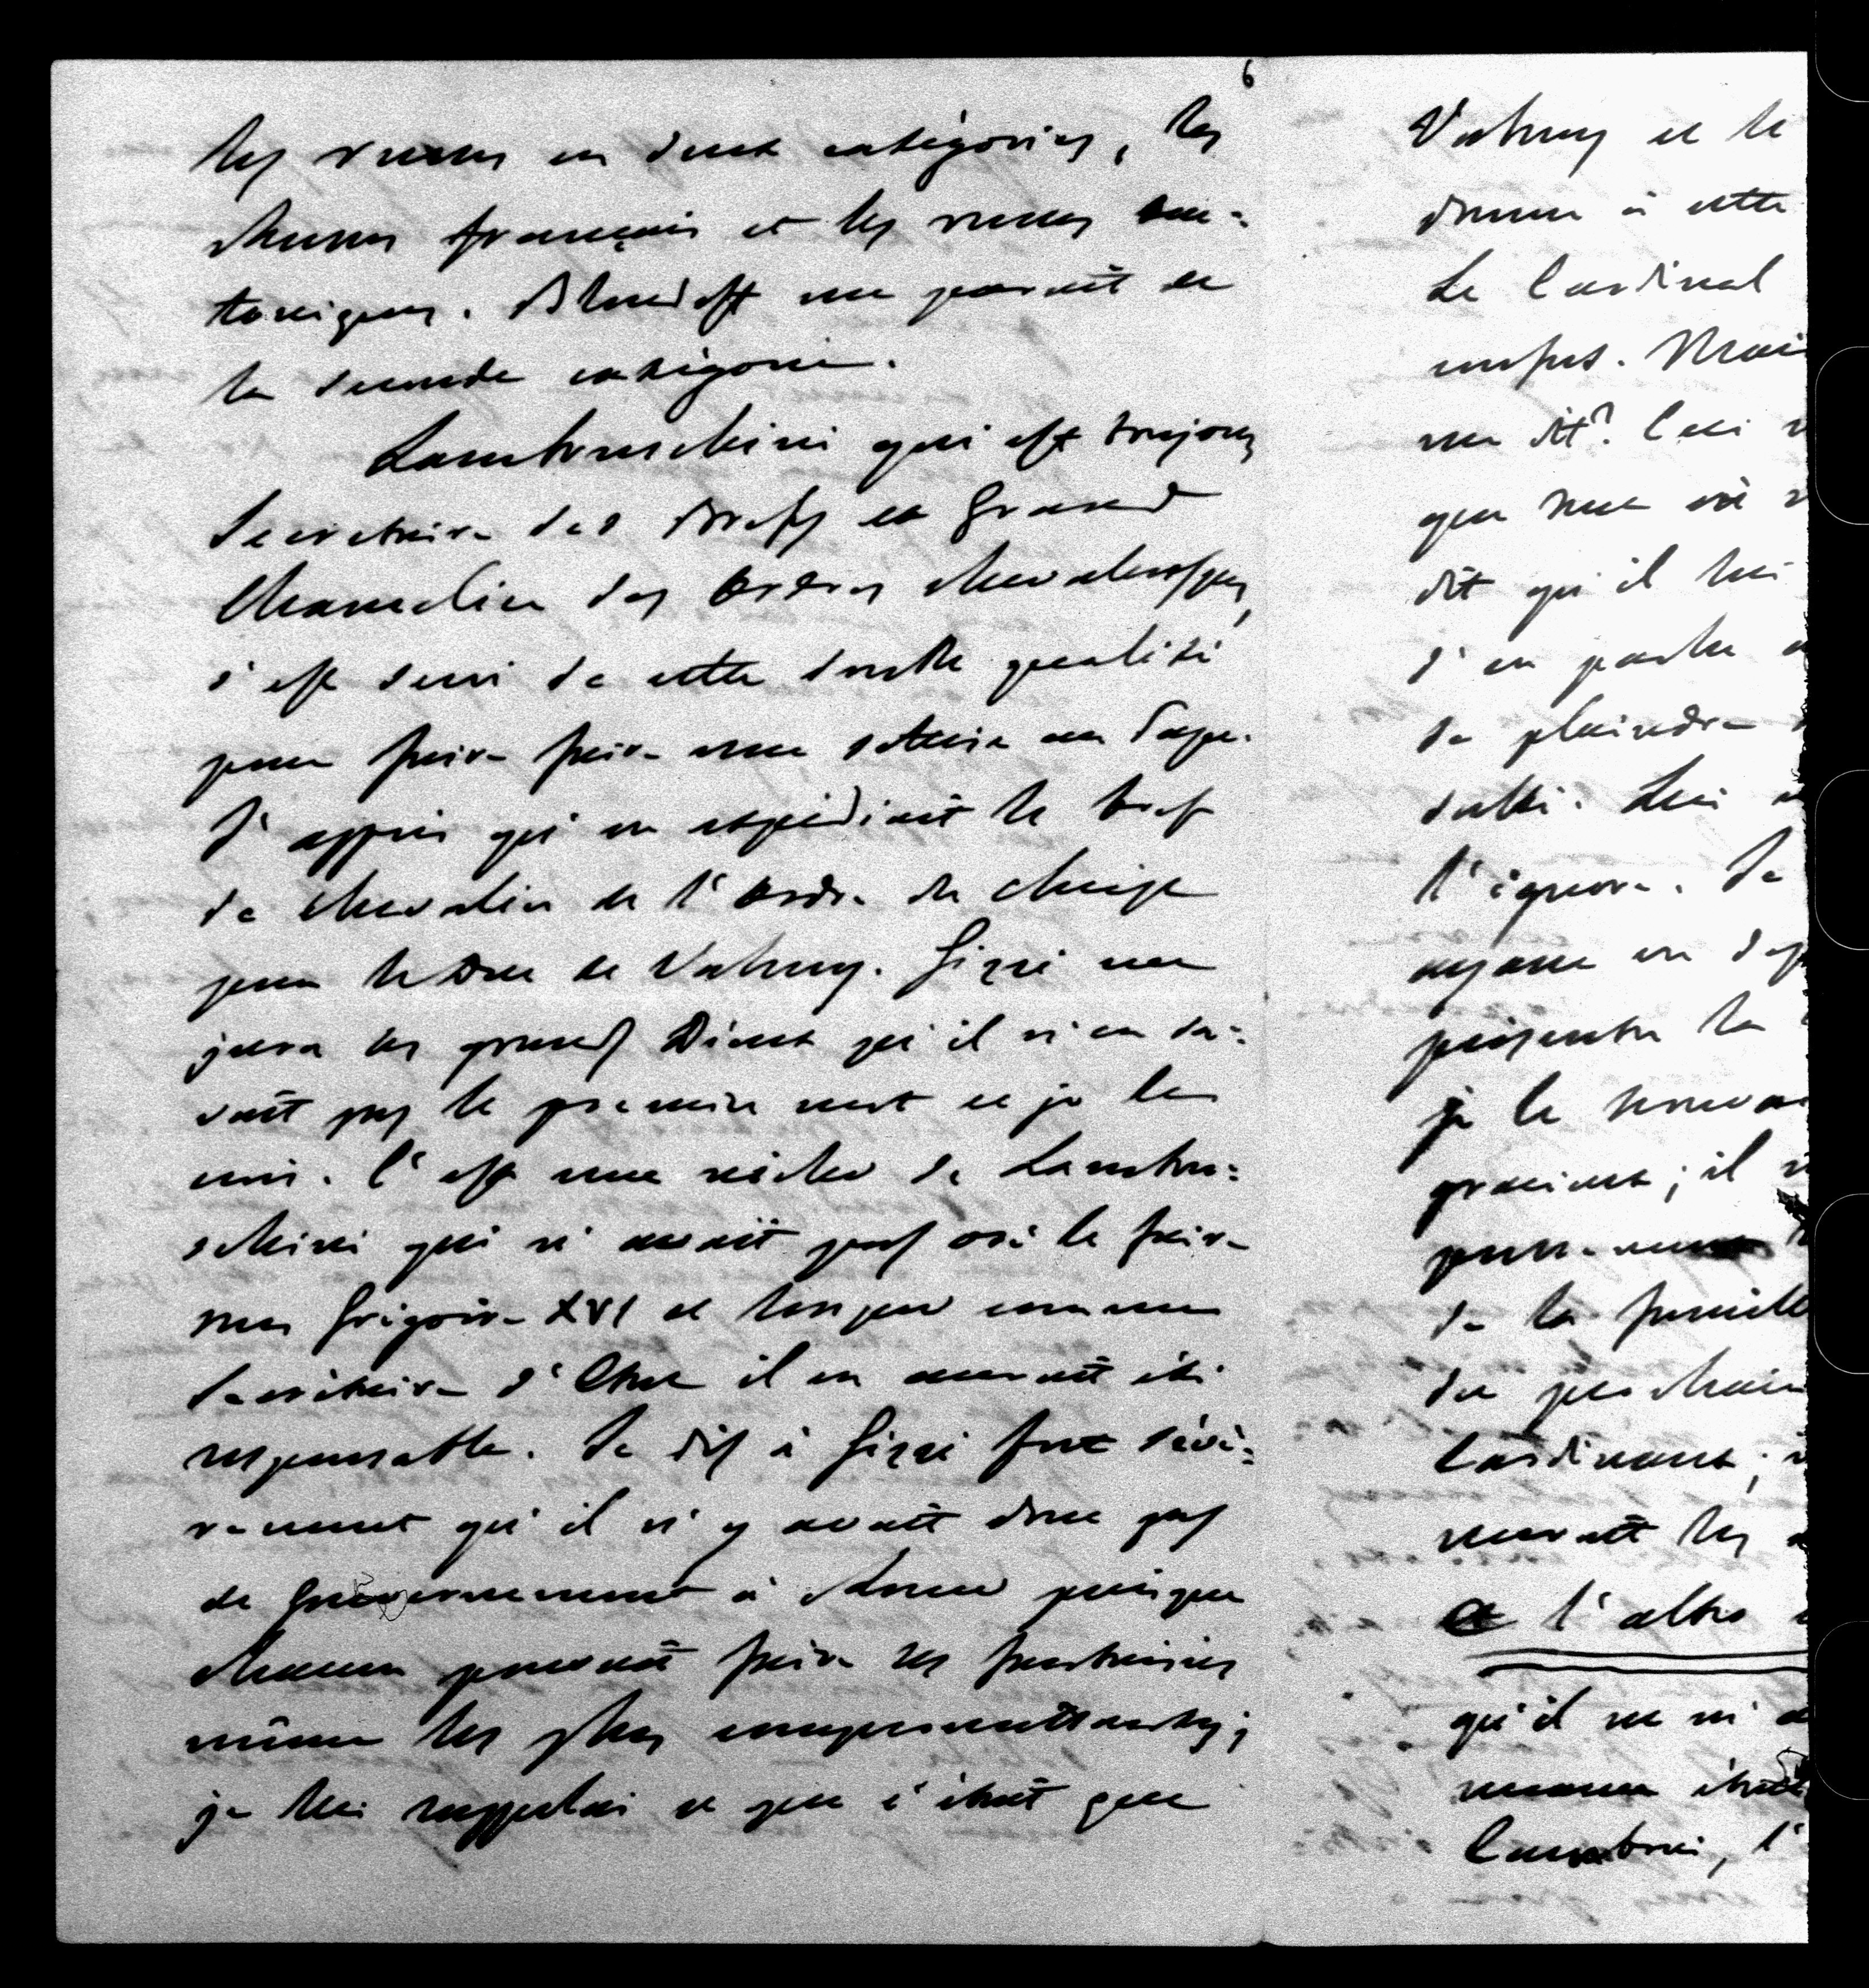 6
les russes en deux catégories, les
russes français et les russes au-
tocrigues. Bloudoff me parait de
la seconde catégorie.
Lambruschini qui est toujours
Secretaire des Brefs et Grand
Chancelier des Ordres chevaleresques,
s'est servi de cette double qualité
pour faire faire une sottise au Pape.
J'appris qu'on expédiait le bref
de chevalier de l'Ordre du Christ
pour le Duc de Valmy. Gizzi me
jura ses grands Dieux qu'il n'en sa=
vait pas le premier mot et je le
crois. C'est une niche de Lambru=
schini qui n'avait pas osé le faire
sous Grégoire XVI et lorsque comme
Secrétaire d'Etat il en aurait été
responsable. Je dis à Gizzi fort sévè=
rement qu'il n'y avait donc pas
de Gouvernement à Rome puisque
chacun pouvait faire ses fantaisies
même les plus compromettantes;
je lui rappelai ce que c'était que
Valmy et le
donne à cette
Le Cardinal
confus. Mais
me dit? Ceci
que
dit qu'il lui
d'en parler
de plaindre
Lui
l'ignore. Je
ayant un
présenter la
je le trouvai
gracieux; il
de la famille
du prochain
Cardinaux;
les
et l'altro
qu'il ne m'a
était
l'